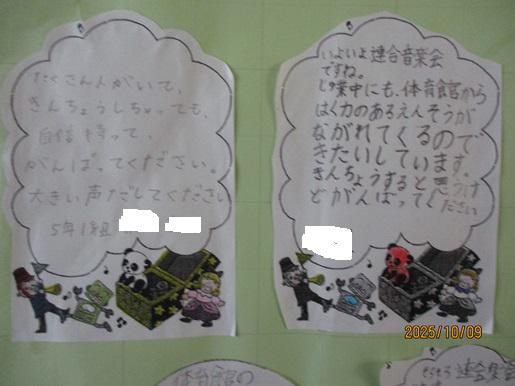 たくさん人がいて、
きんちょうしちゃっても、
自信持って、
がんばってください。
大きい声だしてください
5年1組
いよいよ連合音楽会
ですね。
じゅ業中にも、体育館から
はく力のあるえんそうが
ながれてくるので
きたいしています。
きんちょうすると思うけ
どがんばってください
2025/10/09
体育館の
連合音楽会